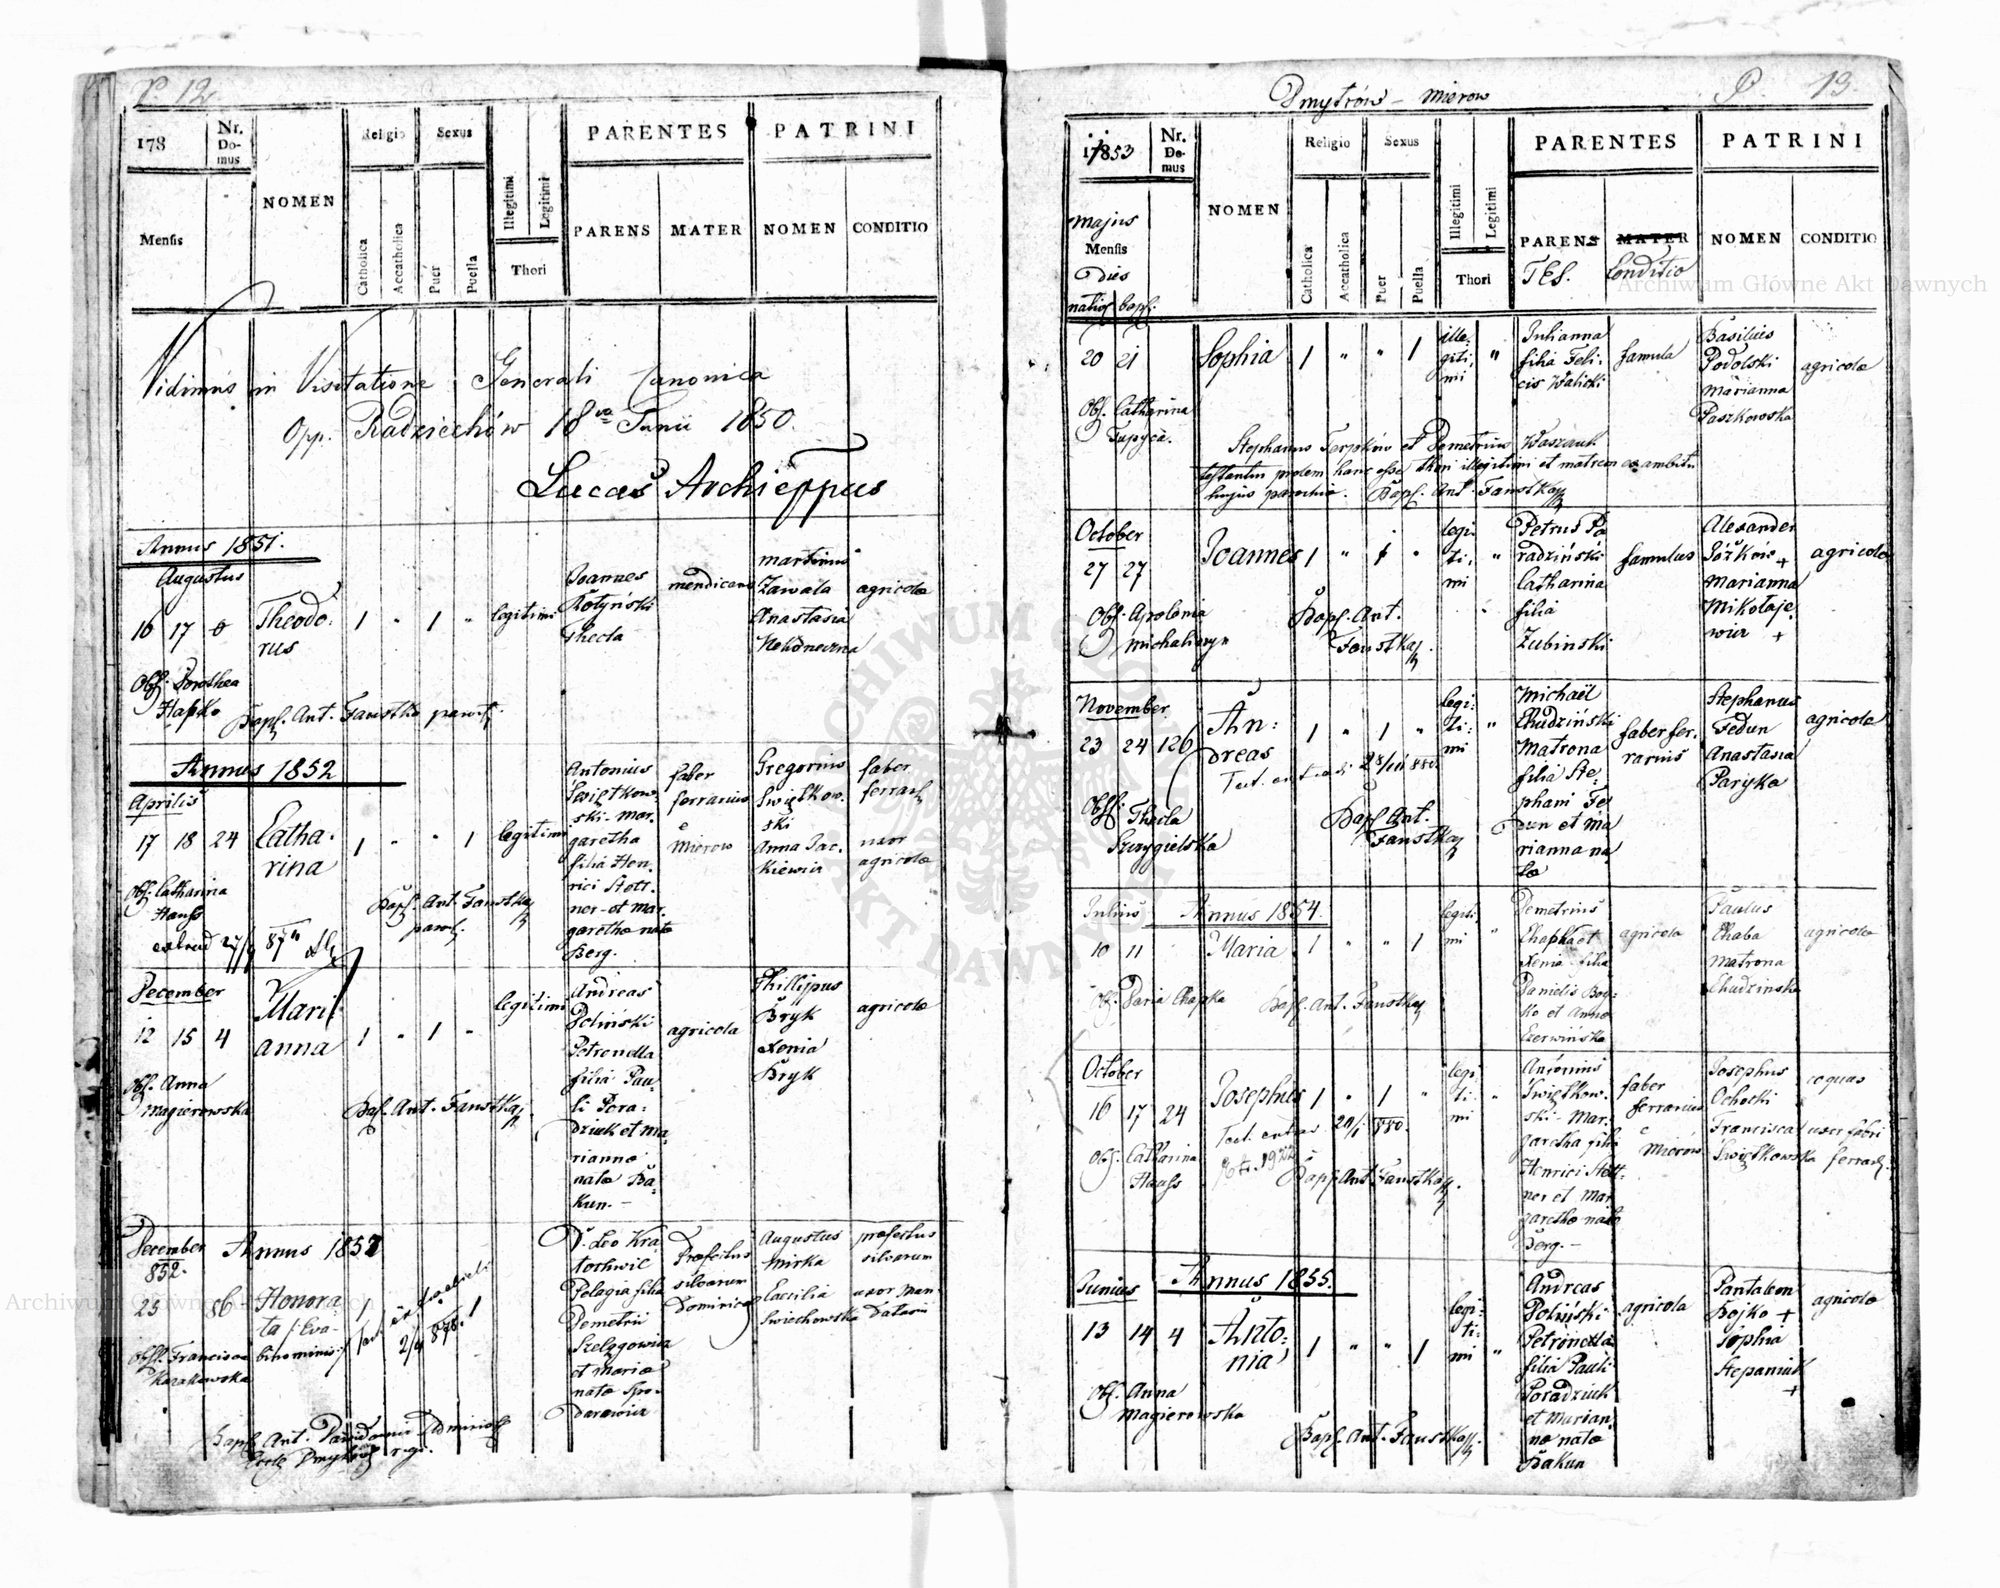 P. 12
178
Nr. Domus
NOMEN
Religio
Sexus
PARENTES
PATRINI
Mensis
Catholica
Accatholica
Puer
Puella
Illegitimi
Legitimi
Thori
PARENS
MATER
NOMEN
CONDITIO
Vidimus in Visitatione Generali Canonica
Opp. Radziechów 18va Junii 1850.
Lucas Archieppus
Annus 1851.
Augustus
16 17 0
Theodo:
rus
1 " 1 "
legitimi
Joannes
Kotyński
Thecla
mendicans
Martinus
Zawala
Anastasia
agricola
Obst. Dorothea
Hapko
Bapt. Ant. Faustka
Annus 1852
Aprilis
17 18 24
Catha:
rina
1 " " 1
legitimi
Antonius
Swiętkow:
ski - Mar:
garetha
filia Hen:
rici Stott:
ner et Mar:
garetha nata
Berg.
faber
ferrarius
e
Mierow
Gregorius
Swiętkow:
ski
Anna Jac:
kiewicz
faber
ferrar.
uxor
agricola
Obst. Catharina
Hauss
Bapt. Ant. Faustka
December
12 15 4
Mari
anna
1 " 1 "
legitimi
Andreas
Poliński
Petronella
filia Pau:
li Pora:
dziuk et Ma:
rianna
nata Ba:
kun. -
agricola
Phillippus
Bryk
Xenia
Bryk
agricola
Obst. Anna
Magierowska
Bapt. Ant. Faustka
December
852.
Annus 1852
25 86
Honora
ta
binominis
1 1
D. Leo Kra
tochwil
Pelagia filia
Demetrii
Szelągowicz
et Maria
nata Spo:
darowicz
Praefectus
silvarum
Dominica
Augustus
Mirka
Caecilia
Swiechowska
praefectus
silvarum
uxor Man:
datarii
Obst. Francisca
Karakowska
Dmytrów - Mierow
P. 13.
1853
Nr. Domus
NOMEN
Religio
Sexus
PARENTES
PATRINI
Majus
Mensis
Dies
natio bapt.
Catholica
Accatholica
Puer
Puella
Illegitimi
Legitimi
Thori
PARENS
TES.
MATER
Conditio
NOMEN
CONDITIO
20 21
Sophia
1 " " 1
ille:
giti:
mi
"
Julianna
filia Feli:
cis Waliski
famula
Basilius
Podolski
Marianna
Paszkowska
agricola
Obst. Catharina
Tupyca.
Stephanus Terpków et Demetrius Waszczuk
testantur prolem hanc esse thori illegitimi et matrem ex ambitu
hujus parochiæ. Bapt. Ant. Faustka
October
27 27
Joannes
1 " 1 "
legi
ti:
mi
"
Petrus Po
radziński
Catharina
filia
Zubinski
famulus
Alexander
Marianna
Mikołaje
wicz +
agricola
Obst. Apolonia
Bapt. Ant.
Faustka.
November
23 24 126
An:
dreas
1 " 1 "
legi:
ti:
mi
"
Michaël
Chudziński
Matrona
filia Ste:
phani Fe
dun et Ma
rianna na
ta
faber fer:
rarius
Stephanus
Fedun
Anastasia
Paryka
agricola
Obst. Thecla
Szczygielska
Bapt. Ant.
Faustka
Julius
Annus 1854.
10 11
Maria
1 " " 1
legiti
mi
"
Demetrius
Chapka et
Xenia filia
Danielis Boy:
ko et Anna
Czerwinska
agricola
Paulus
Chaba
Matrona
Chudzinska
agricola
Obst. Daria Chapka
Bapt. Ant. Faustka
October
16 17 24
Josephus
1 " 1 "
legi
ti:
mi
"
Antonius
Swiętkow:
ski - Mar:
garetha filia
Henrici Stott:
ner et Mar
garetha nata
Berg. -
faber
ferrarius
e
Mierów
Josephus
Ochocki
Francisca
Swiętkowska
coquus
uxor fabri
ferrar.
Obst. Catharina
Hauss
Bapt. Ant. Faustka.
Junius
Annus 1855.
13 14 4
Anto:
nia
1 " " 1
legi:
ti:
mi
"
Andreas
Poliński
Petronella
filia Pauli
Poradziuk
et Marian:
na nata
Bakun
agricola
Pantaleon
Bojko +
Sophia
Stepaniuk
+
agricola
Obst. Anna
Magierowska
Bapt. Ant. Faustka.
Archiwum Główne Akt Dawnych
ARCHIWUM GŁÓWNE AKT DAWNYCH